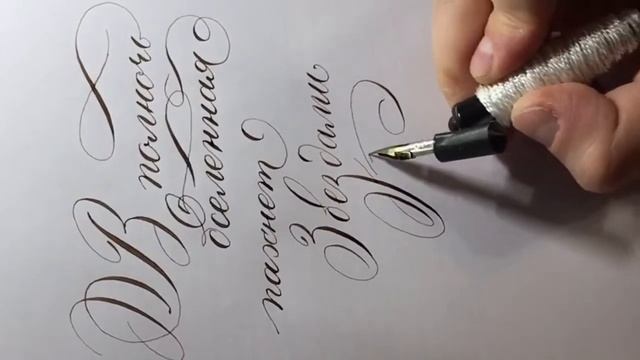 В полночь
вселенная
пахнет
Звездами